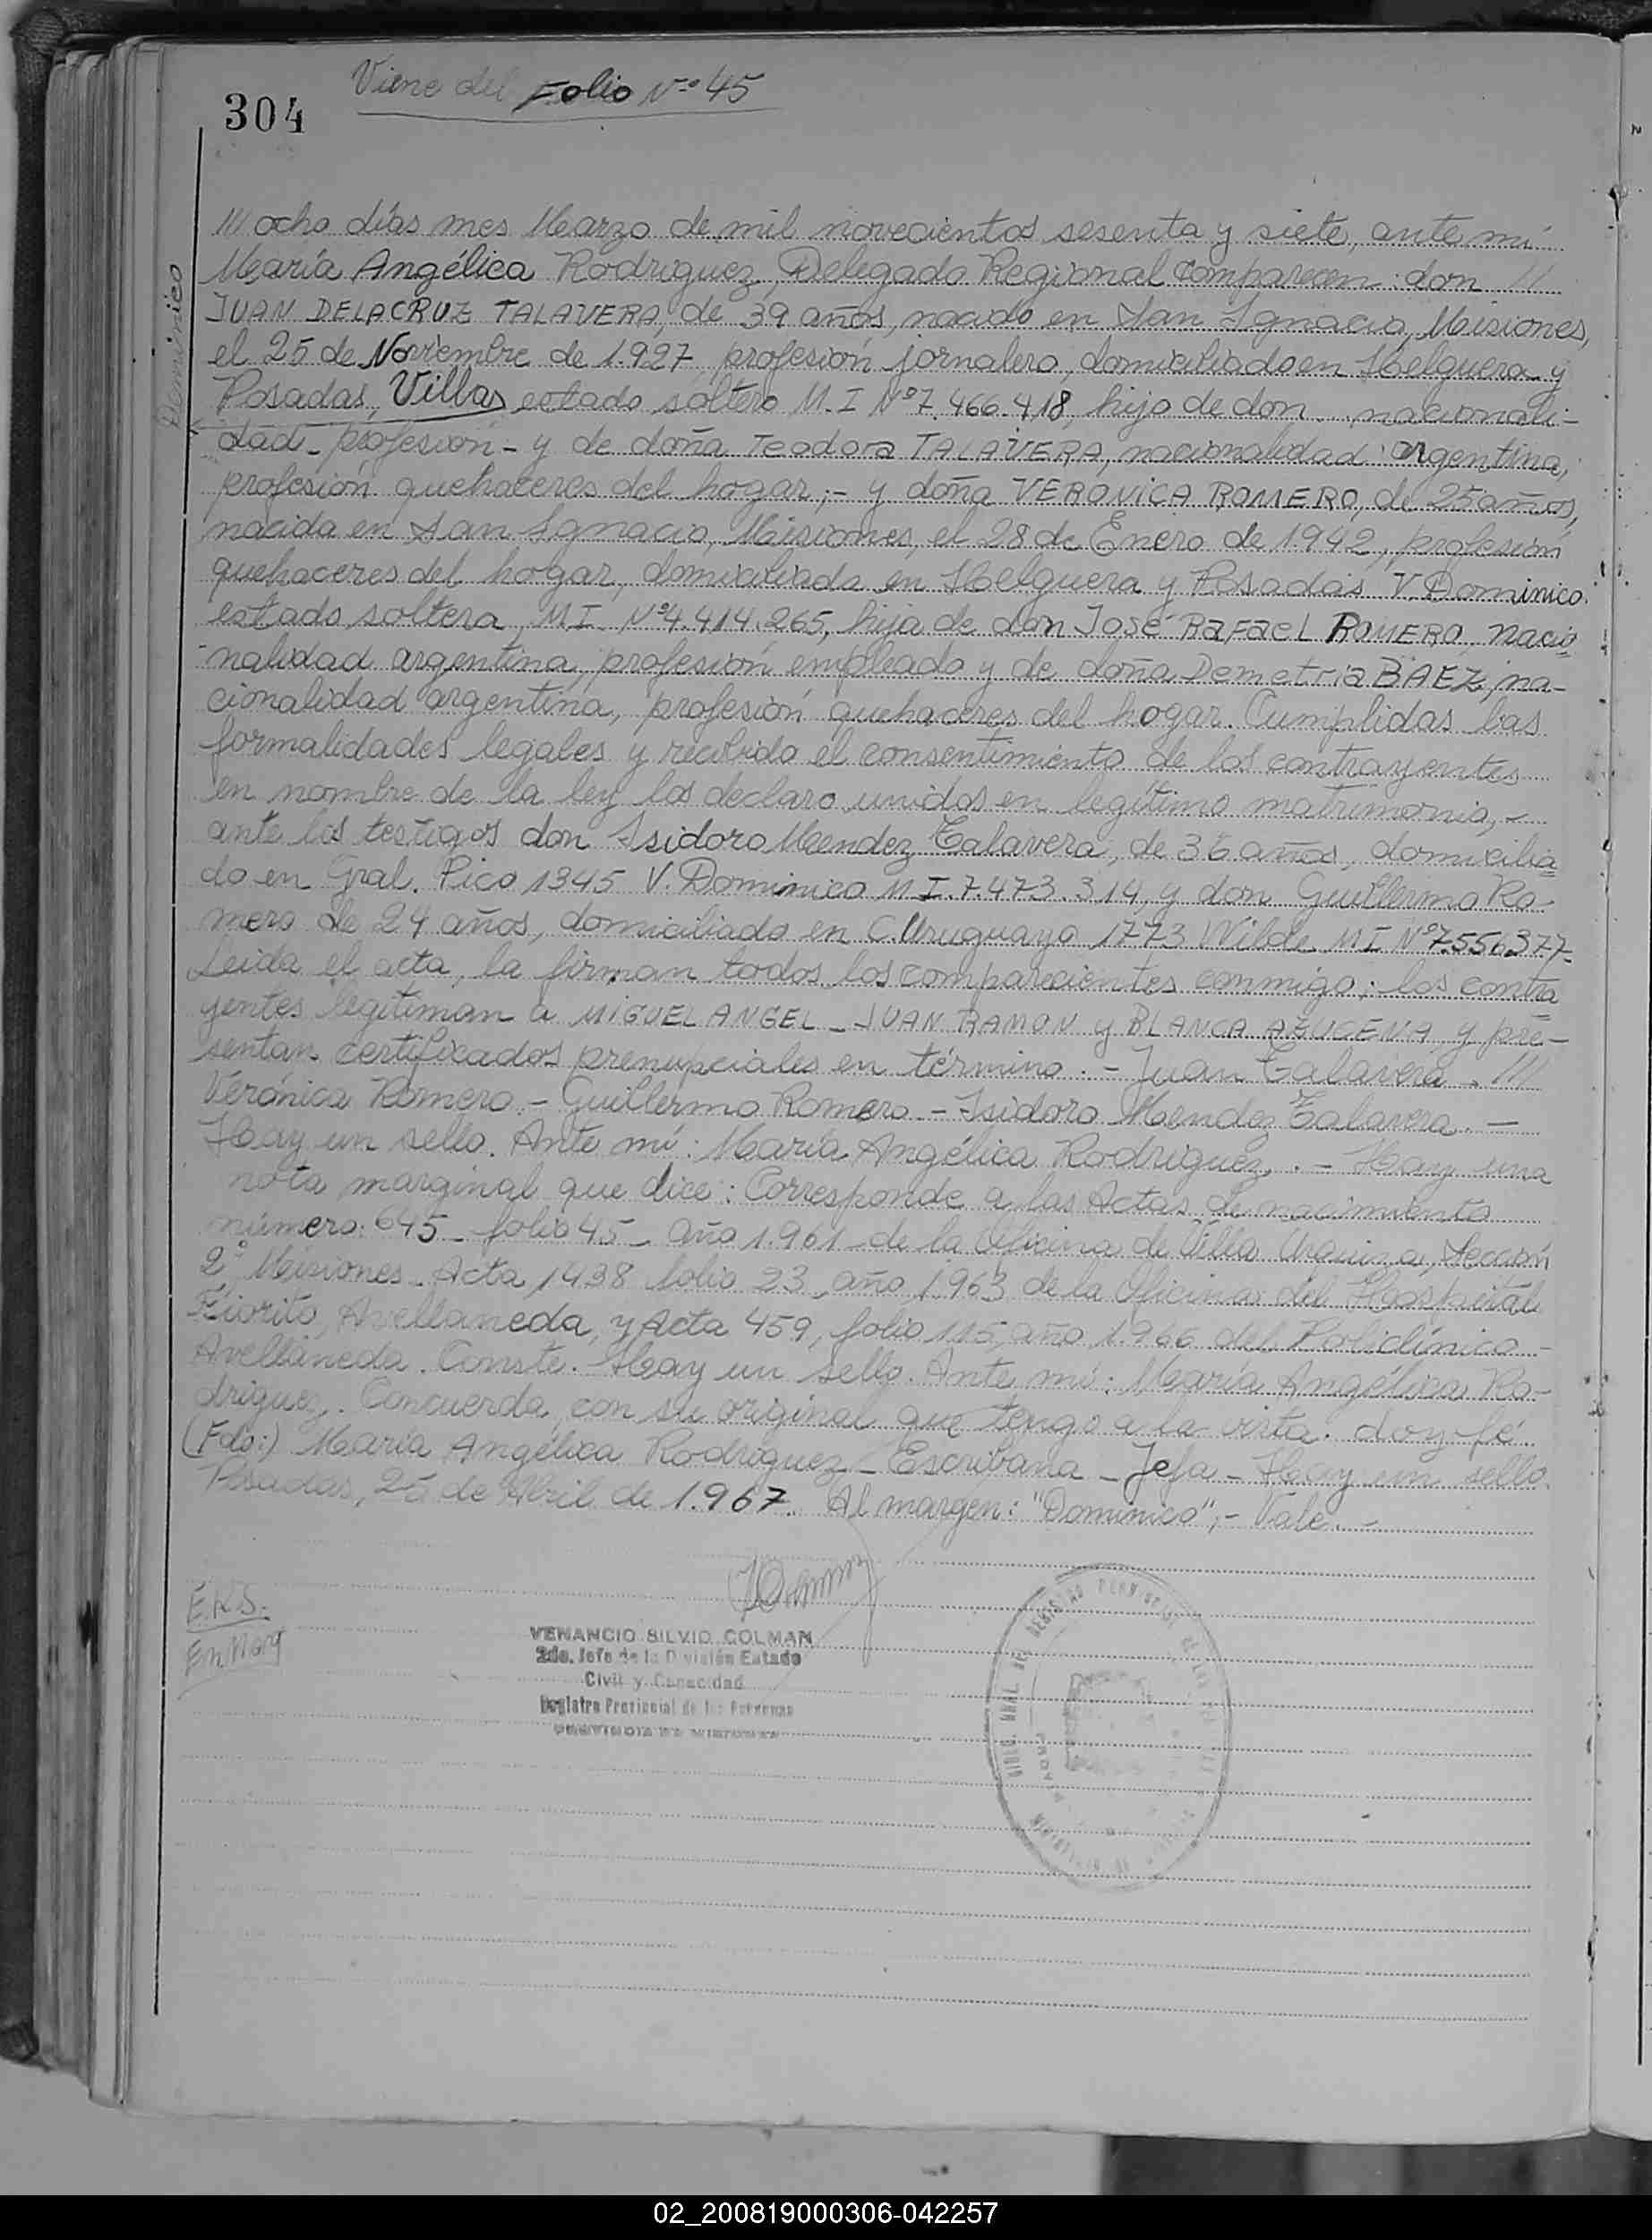 Viene del Folio Nº 45
304
/// ocho días mes Marzo de mil novecientos sesenta y siete, ante mí
María Angélica Rodriguez, Delegado Regional comparecen: don //
JUAN DELACRUZ TALAVERA, de 39 años, nacido en San Ignacio, Misiones,
el 25 de Noviembre de 1.927, profesión jornalero, domiciliado en Helguera y
Posadas, Villa, estado soltero M.I Nº 7.466.418, hijo de don . , nacionali-
Dominico
dad - profesión - y de doña Teodora TALAVERA, nacionalidad argentina,
profesión quehaceres del hogar;- y doña VERONICA ROMERO, de 25 años,
nacida en San Ignacio, Misiones, el 28 de Enero de 1942, profesión
quehaceres del hogar, domiciliada en Helguera y Posadas V. Dominico.
estado soltera, M.I. Nº 4.414.265, hija de don José Rafael ROMERO, nacio
nalidad argentina, profesión empleado y de doña Demetria BAEZ, na-
cionalidad argentina, profesión quehaceres del hogar. Cumplidas las
formalidades legales y recibido el consentimiento de los contrayentes
en nombre de la ley los declaro unidos en legítimo matrimonio, -
ante los testigos don Isidoro Mendez Talavera, de 36 años, domicilia
do en Gral. Pico 1345 V. Dominico M.I. 7.473.314, y don Guillermo Ro-
mero de 24 años, domiciliado en C. Uruguayo 1773 Wilde M.I Nº 7.556.377-
Leida el acta, la firman todos los comparecientes conmigo; los contra
yentes legitiman a MIGUEL ANGEL - JUAN RAMON y BLANCA AZUCENA y pre-
sentan certificados prenupciales en término. - Juan Talavera. ///
Verónica Romero - Guillermo Romero - Isidoro Mendez Talavera. -
Hay un sello. Ante mí: María Angélica Rodriguez. - Hay una
nota marginal que dice: Corresponde a las Actas de nacimiento
número: 645 - folio 45 - año 1.961 - de la Oficina de Villa Urquiza, Sección
2º Misiones - Acta 1438 folio 23, año 1.963 de la Oficina del Hospital
Fiorito, Avellaneda, y Acta 459, folio 115, año 1.966 del Policlínico -
Avellaneda. Conste. Hay un sello. Ante mí: María Angélica Ro-
driguez. Concuerda con su original que tengo a la vista. doy fé.
(Fdo:) María Angélica Rodriguez - Escribana - Jefa - Hay un sello.
Posadas, 25 de Abril de 1.967. Al margen: "Dominico";- Vale. -
E.R.S.
VENANCIO SILVIO COLMAN
2do. Jefe de la División Estado
Civil y Capacidad
Registro Provincial de las Personas
PROVINCIA DE MISIONES
02_200819000306-042257